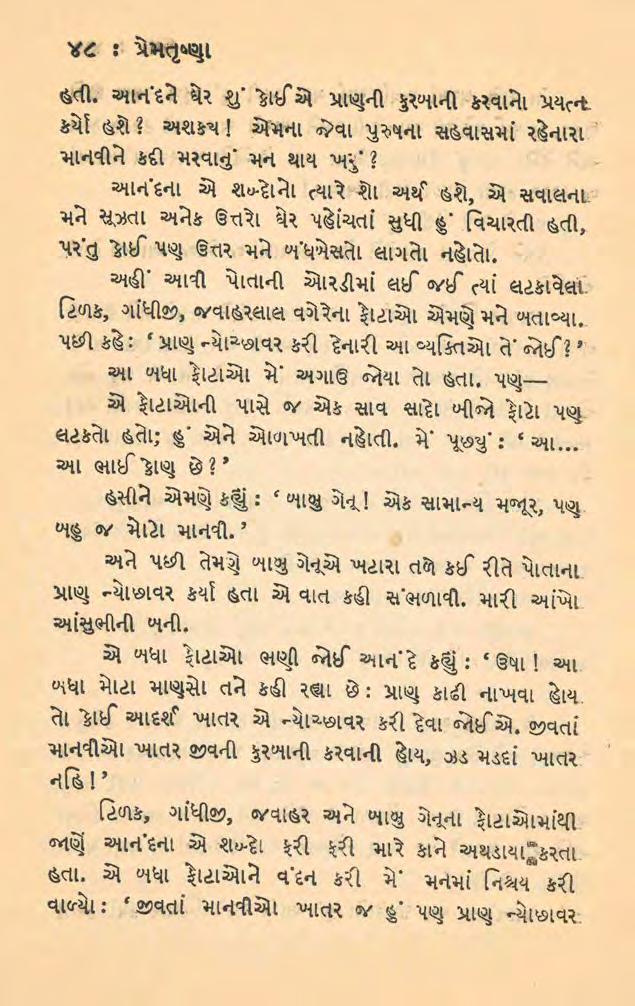 ૪૮ : પ્રેમતૃષ્ણા
હતી. આનંદને ઘેર શું કોઈએ પ્રાણની કુરબાની કરવાનો પ્રયત્ન
કર્યો હશે? અશક્ય! એમના જેવા પુરુષના સહવાસમાં રહેનારા
માનવીને કદી મરવાનું મન થાય ખરું?
આનંદના એ શબ્દોનો ત્યારે શો અર્થ હશે, એ સવાલના
મને સૂઝતા અનેક ઉત્તરો ઘેર પહોંચતાં સુધી હું વિચારતી હતી,
પરંતુ કોઈ પણ ઉત્તર મને બંધબેસતો લાગતો નહોતો.
અહીં આવી પોતાની ઓરડીમાં લઈ જઈ ત્યાં લટકાવેલા
ટિળક, ગાંધીજી, જવાહરલાલ વગેરેના ફોટાઓ એમણે મને બતાવ્યા.
પછી કહે: ‘પ્રાણ ન્યોચ્છાવર કરી દેનારી આ વ્યક્તિઓ તેં જોઈ?’
આ બધા ફોટાઓ મેં અગાઉ જોયા તો હતા. પણ—
એ ફોટાઓની પાસે જ એક સાવ સાદો બીજો ફોટો પણ
લટકતો હતો; હું એને ઓળખતી નહોતી. મેં પૂછ્યું: ‘આ...
આ ભાઈ કોણ છે?’
હસીને એમણે કહ્યું: ‘બાબુ ગેનૂ! એક સામાન્ય મજૂર, પણ
બહુ જ મોટો માનવી.’
અને પછી તેમણે બાબુ ગેનૂએ ખટારા તળે કઈ રીતે પોતાના
પ્રાણ ન્યોછાવર કર્યા હતા એ વાત કહી સંભળાવી. મારી આંખો
આંસુભીની બની.
એ બધા ફોટાઓ ભણી જોઈ આનંદે કહ્યું: ‘ઉષા! આ
બધા મોટા માણસો તને કહી રહ્યા છે: પ્રાણ કાઢી નાખવા હોય
તો કોઈ આદર્શ ખાતર એ ન્યોચ્છાવર કરી દેવા જોઈએ. જીવતાં
માનવીઓ ખાતર જીવની કુરબાની કરવાની હોય, ઝડ મડદાં ખાતર
નહિ!’
ટિળક, ગાંધીજી, જવાહર અને બાબુ ગેનૂના ફોટાઓમાંથી
જાણે આનંદના એ શબ્દો ફરી ફરી મારે કાને અથડાયા કરતા
હતા. એ બધા ફોટાઓને વંદન કરી મેં મનમાં નિશ્ચય કરી
વાળ્યો: ‘જીવતાં માનવીઓ ખાતર જ હું પણ પ્રાણ ન્યોછાવર